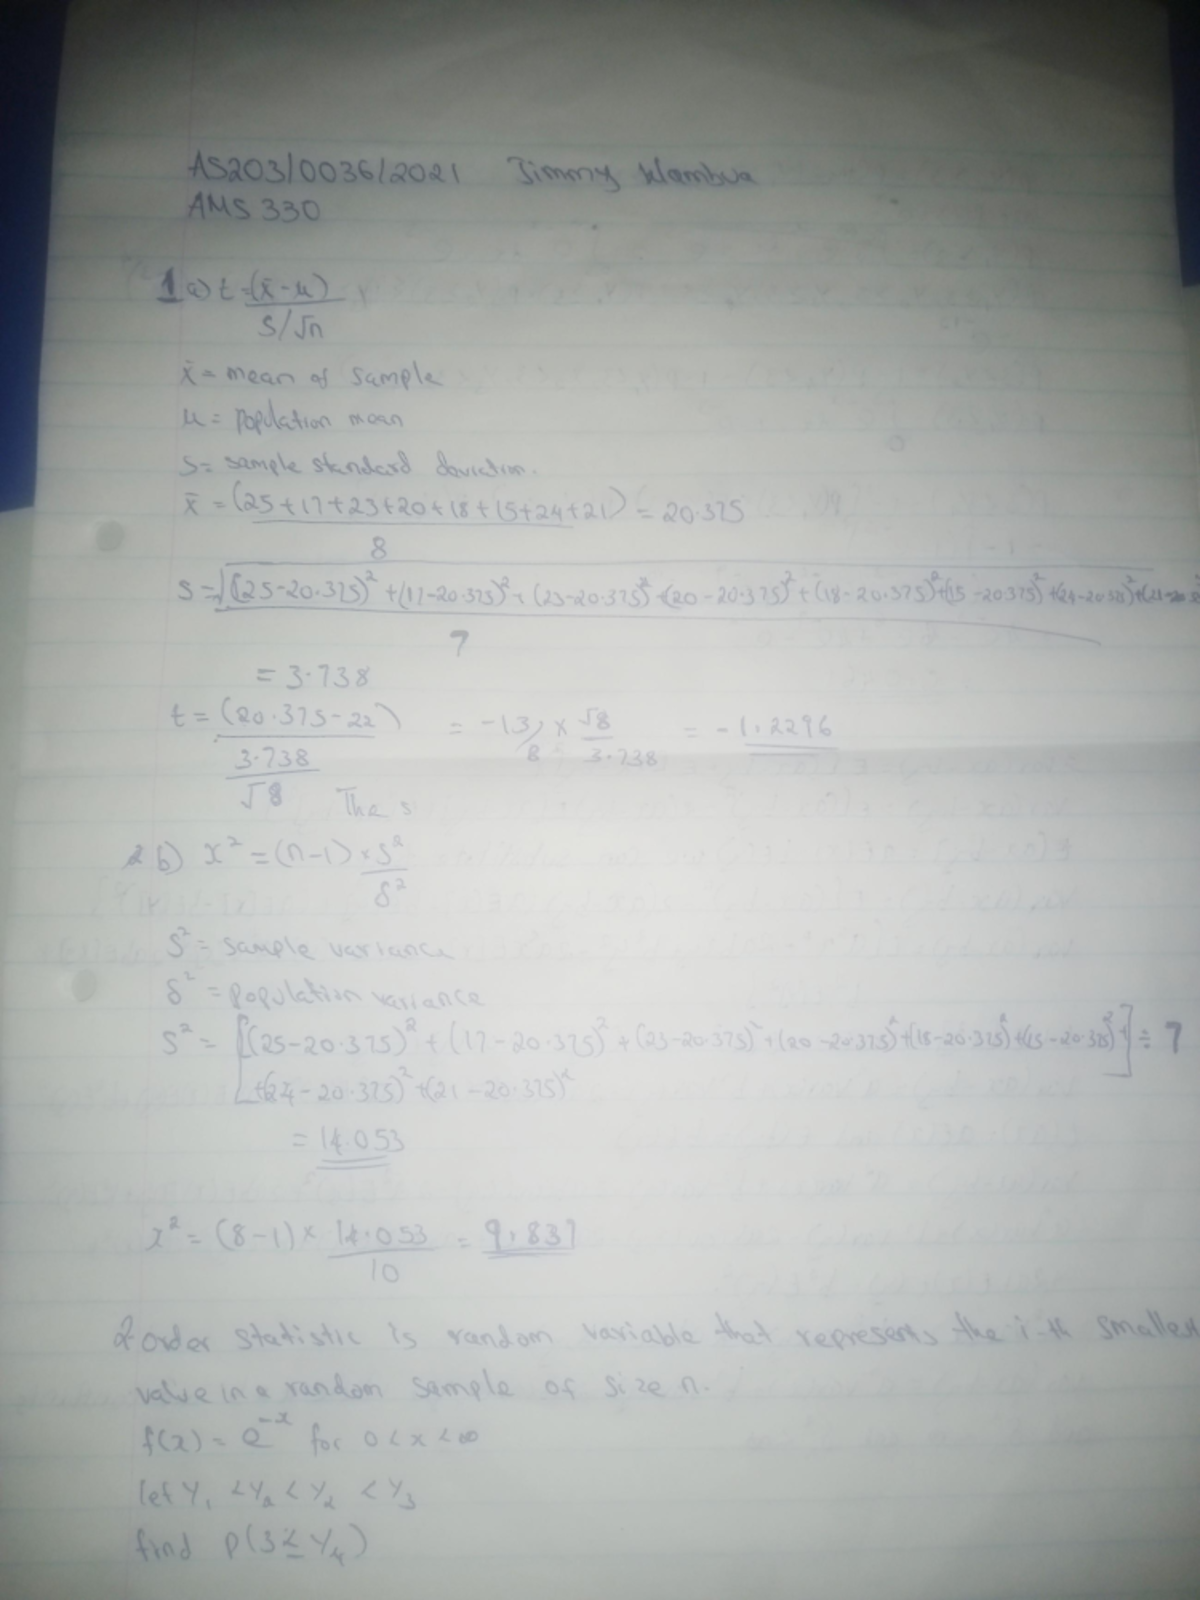 AS203/0036/2021 Jimmy Wambua
AMS 330
1 a) t = (x̄-μ)
S/√n
x̄ = mean of sample
μ = population mean
S = sample standard deviation.
x̄ = (25+17+23+20+18+15+24+21) = 20.375
8
S = √((25-20.375)² + (17-20.375)² + (23-20.375)² + (20-20.375)² + (18-20.375)² + (15-20.375)² + (24-20.375)² + (21-20.
7
= 3.738
t = (20.375-22) = -13/8 × √8/3.738 = -1.2296
3.738
√8 The s
b) x² = (n-1) × S²
δ²
S² = sample variance
δ² = population variance
S² = [(25-20.375)² + (17-20.375)² + (23-20.375)² + (20-20.375)² + (18-20.375)² + (15-20.375)² + ] ÷ 7
+(24-20.375)² + (21-20.375)²
= 14.053
x² = (8-1) × 14.053 = 9.837
10
2 order statistic is random variable that represents the i-th smallest
value in a random sample of size n.
f(x) = e^-x for 0 < x < ∞
let Y₁ < Y₂ < Y₂ < Y₃
find P(3 ≤ Y₄)